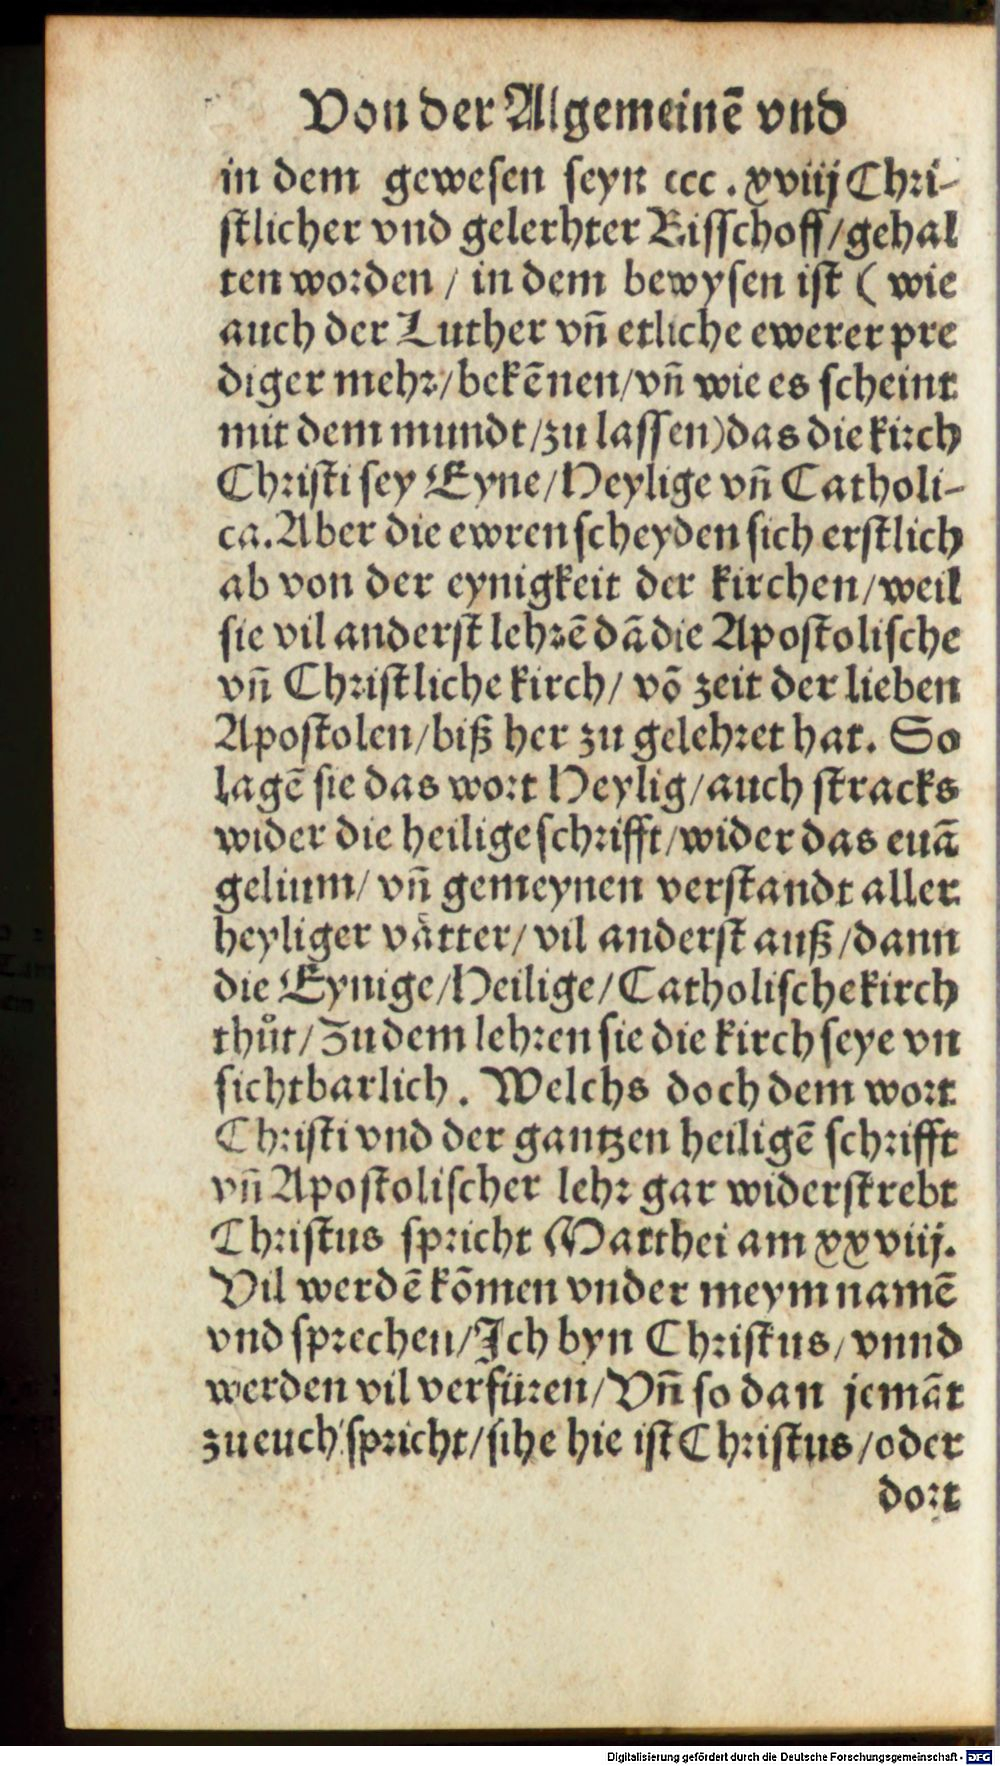 Von der Algemeinē vnd
in dem gewesen seyn ccc. xviij Chri-
stlicher vnd gelerhter Bisschoff/gehal
ten worden / in dem bewysen ist ( wie
auch der Luther vñ etliche ewerer pre
diger mehr/bekēnen/vñ wie es scheint
mit dem mundt/zu lassen)das die kirch
Christi sey Eyne/Heylige vñ Catholi-
ca.Aber die ewren scheyden sich erstlich
ab von der eynigkeit der kirchen/weil
sie vil anderst lehrē dā die Apostolische
vñ Christliche kirch/ vō zeit der lieben
Apostolen/biß her zu gelehret hat. So
lagē sie das wort Heylig/auch stracks
wider die heilige schrifft/wider das euā
gelium/ vñ gemeynen verstandt aller
heyliger vaͤtter/ vil anderst auß/dann
die Eynige/Heilige/Catholische kirch
thuͦt/Zu dem lehren sie die kirch seye vn
sichtbarlich. Welchs doch dem wort
Christi vnd der gantzen heiligē schrifft
vñ Apostolischer lehr gar widerstrebt
Christus spricht Matthei am xxviij.
Vil werdē kōmen vnder meym namē
vnd sprechen/Ich byn Christus/vnnd
werden vil verfüren/Vñ so dan jemāt
zu euch spricht/sihe hie ist Christus/oder
dort
Digitalisierung gefördert durch die Deutsche Forschungsgemeinschaft - DFG